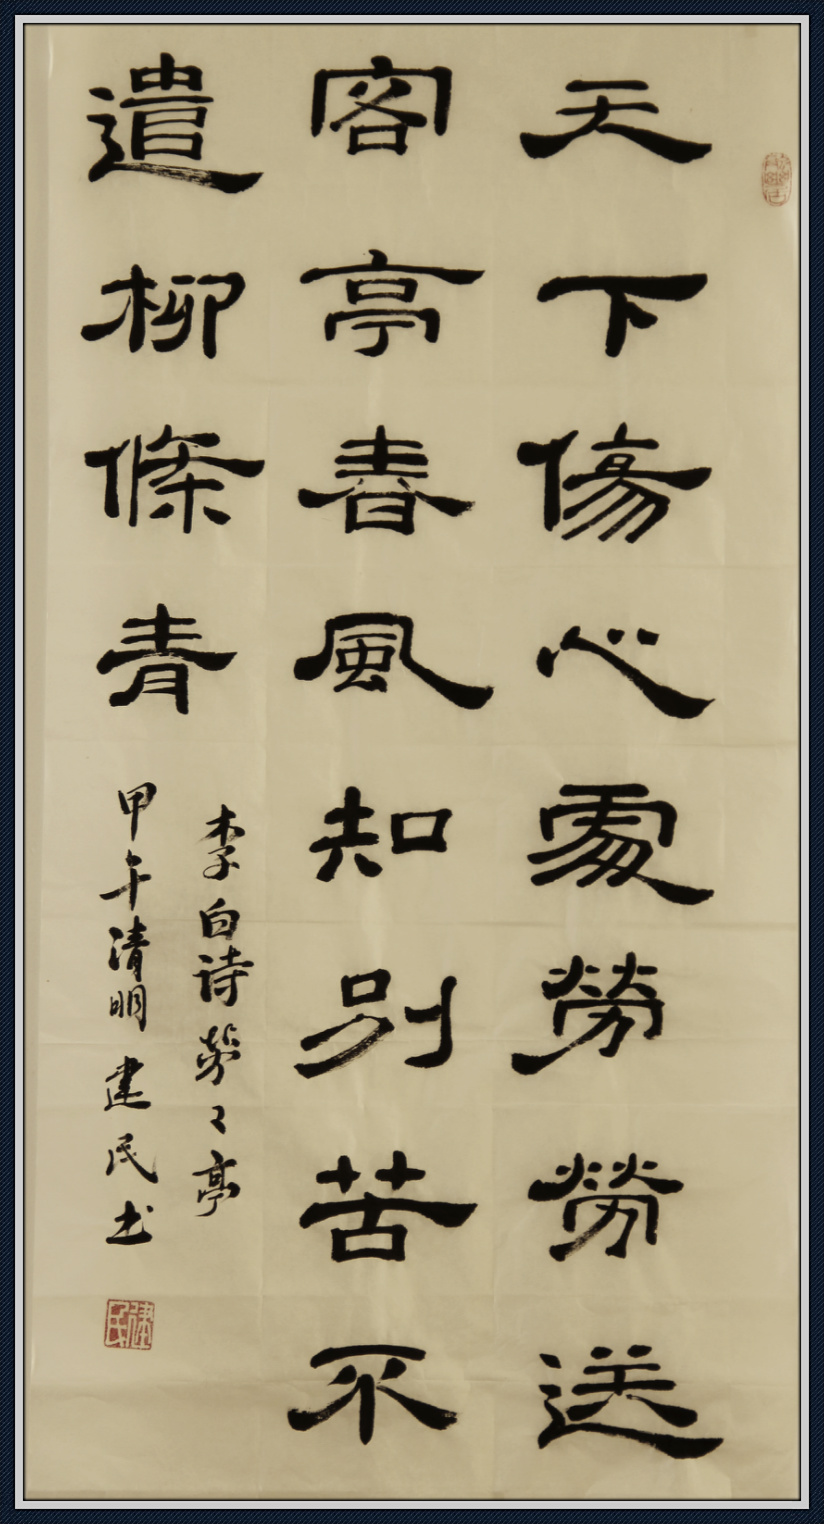 天下傷心處勞勞送
客亭春風知別苦不
遣柳條青
李白诗劳〻亭
甲午清明建民书
建民